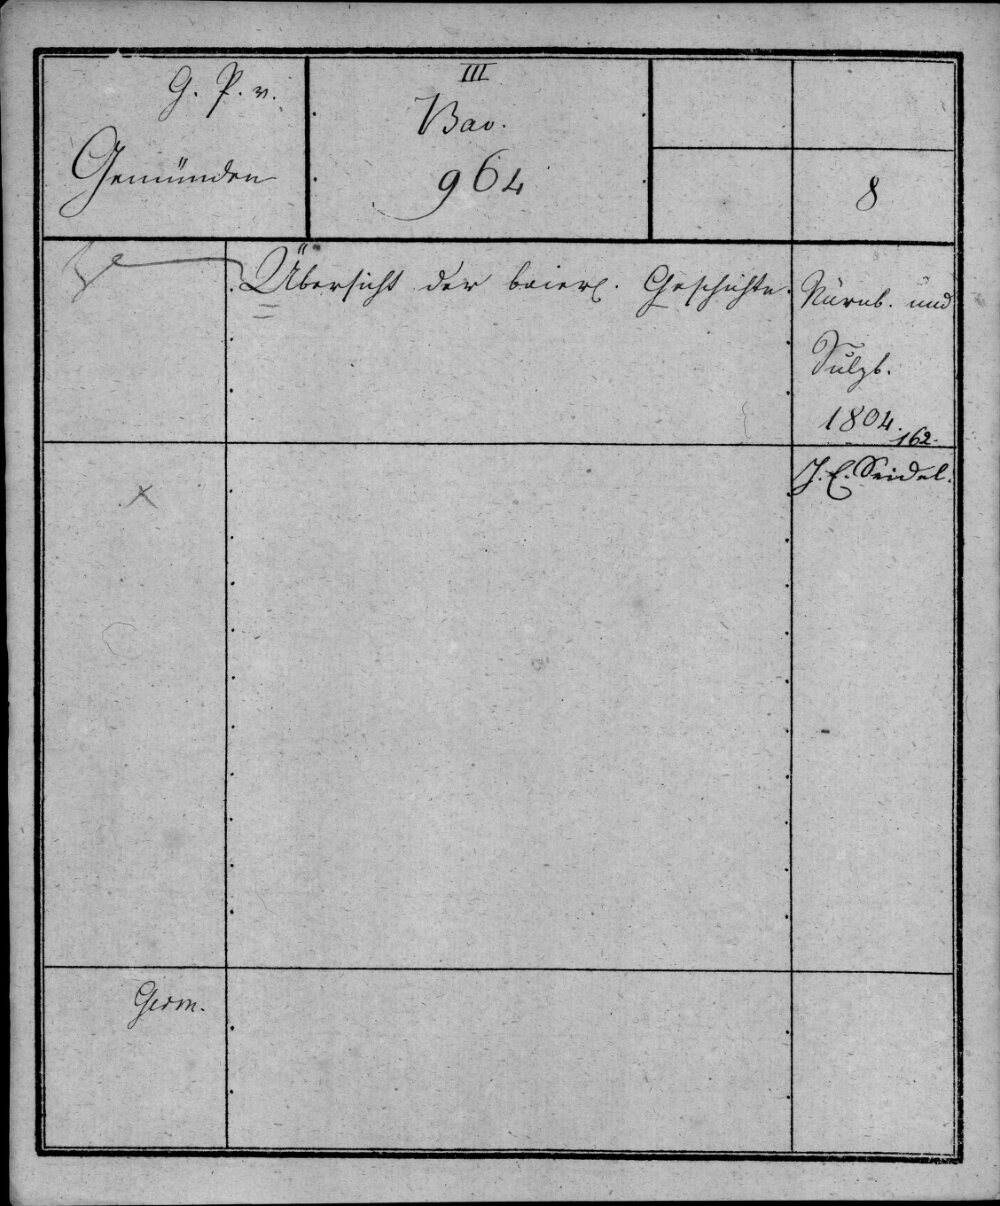 G. P. v.
Gemünden
III
Bav.
964
8
Übersicht der baierl. Geschichte.
Nürnb. und
Sulzb.
1804.
162.
J. E. Seidel.
Germ.